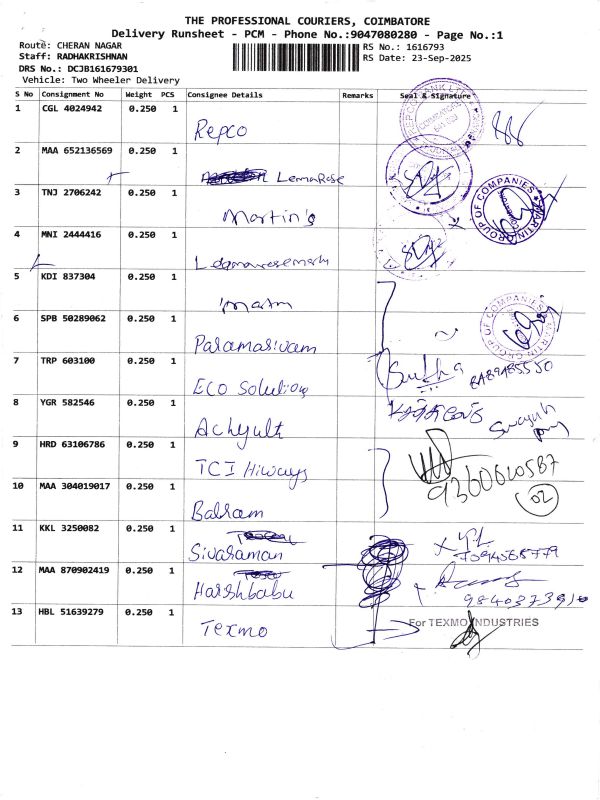 THE PROFESSIONAL COURIERS, COIMBATORE
Delivery Runsheet - PCM - Phone No.:9047080280 - Page No.:1
Route: CHERAN NAGAR
Staff: RADHAKRISHNAN
DRS No.: DCJB161679301
Vehicle: Two Wheeler Delivery
RS No.: 1616793
RS Date: 23-Sep-2025
S No Consignment No Weight PCS Consignee Details Remarks Seal & Signature
1 CGL 4024942 0.250 1 Repco
2 MAA 652136569 0.250 1 LemaRose
3 TNJ 2706242 0.250 1 Martin's
MARTIN GROUP OF COMPANIES
4 MNI 2444416 0.250 1
5 KDI 837304 0.250 1 Martin
6 SPB 50289062 0.250 1 Paramasivam
MARTIN GROUP OF COMPANIES
7 TRP 603100 0.250 1 ECO Solution
Sudha
8 YGR 582546 0.250 1 Achyult
9 HRD 63106786 0.250 1 TCI Hiways
10 MAA 304019017 0.250 1 Balram
02
11 KKL 3250082 0.250 1 Sivaraman
12 MAA 870902419 0.250 1 Harshbabu
13 HBL 51639279 0.250 1 Texmo
For TEXMO INDUSTRIES